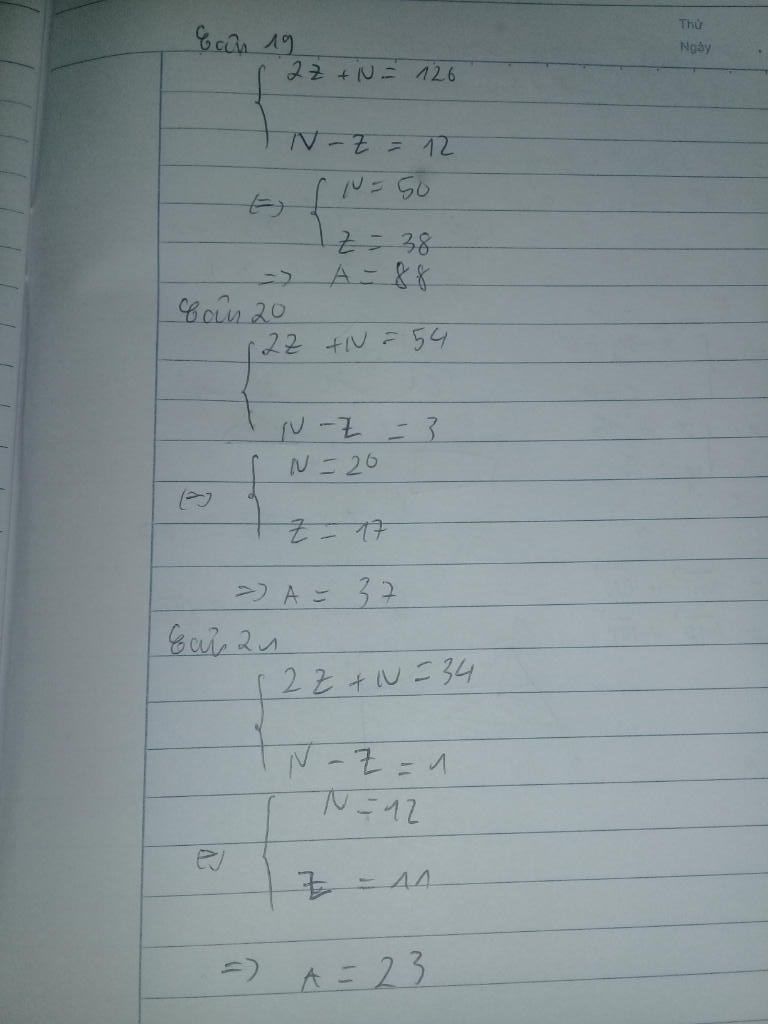 Thứ
Ngày
Câu 19
2Z + N = 126
N - Z = 12
(=) N = 50
Z = 38
=> A = 88
Câu 20
2Z + N = 54
N - Z = 3
(=) N = 20
Z = 17
=> A = 37
Câu 21
2Z + N = 34
N - Z = 1
(=) N = 12
Z = 11
=> A = 23